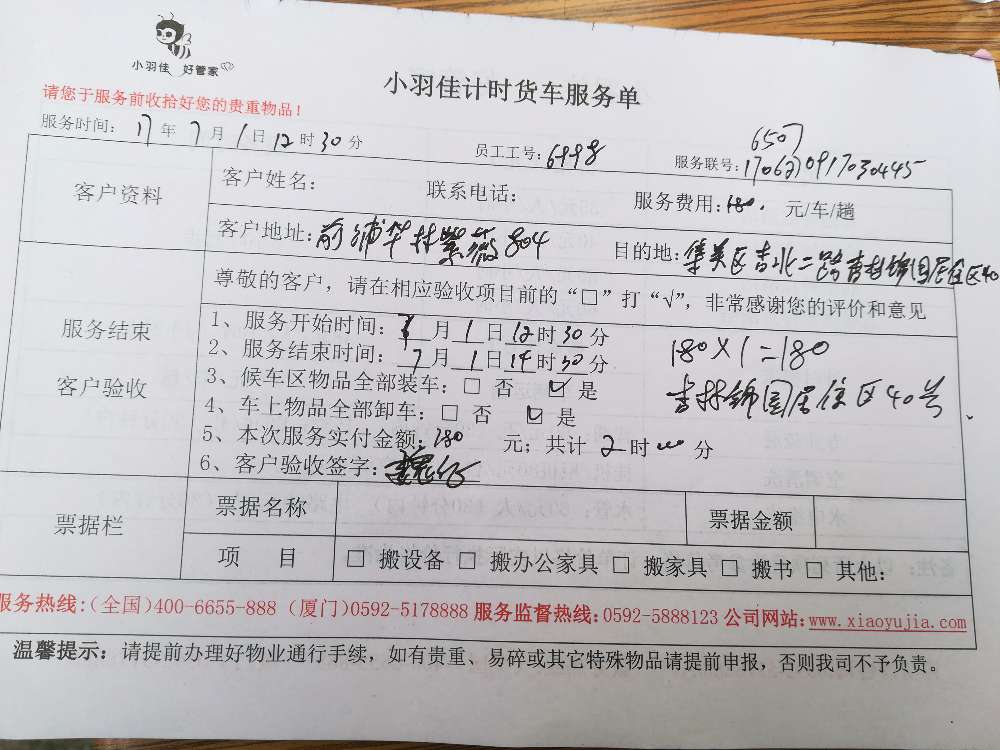 小羽佳 好管家
小羽佳计时货车服务单
请您于服务前收拾好您的贵重物品!
服务时间: 17年7月1日12时30分 员工工号: 6998 服务联号: 1706210917030445
6507
客户资料 客户姓名: 联系电话: 服务费用: 180. 元/车/趟
客户地址: 前埔华林紫薇804 目的地: 集美区吉北二路吉林锦园居住区40
服务结束 客户验收
尊敬的客户,请在相应验收项目前的“□”打“√”,非常感谢您的评价和意见
1、服务开始时间: 7月1日12时30分
2、服务结束时间: 7月1日14时30分
180×1=180
3、候车区物品全部装车: □ 否 ☑ 是
吉林锦园居住区40号.
4、车上物品全部卸车: □ 否 ☑ 是
5、本次服务实付金额: 180 元; 共计 2时00分
6、客户验收签字:
票据栏 票据名称 票据金额
项 目 □ 搬设备 □ 搬办公家具 □ 搬家具 □ 搬书 □ 其他:
服务热线:(全国)400-6655-888 (厦门)0592-5178888 服务监督热线:0592-5888123 公司网站:www.xiaoyujia.com
温馨提示: 请提前办理好物业通行手续,如有贵重、易碎或其它特殊物品请提前申报,否则我司不予负责。